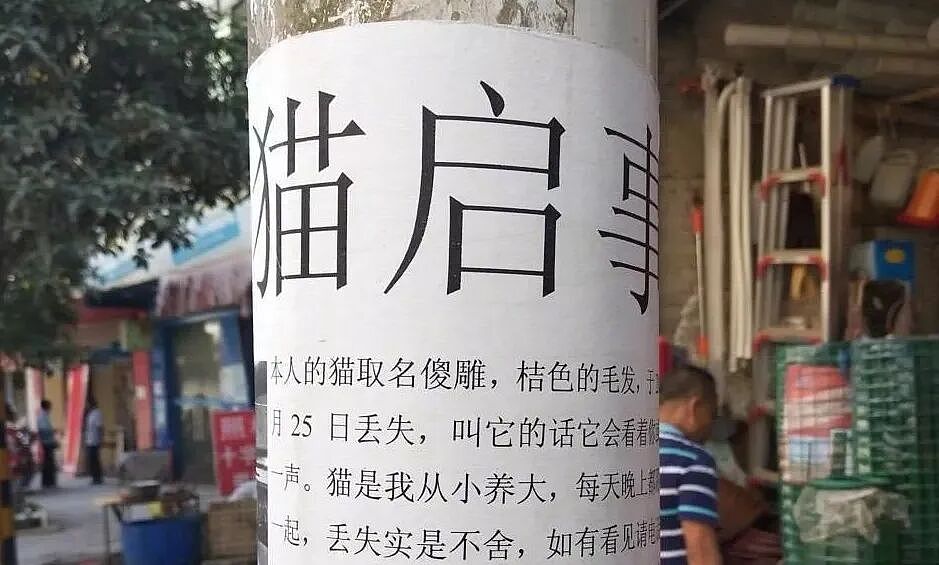 猫启事
本人的猫取名傻雕，桔色的毛发，于
月25日丢失，叫它的话它会看着你
一声。猫是我从小养大，每天晚上都
一起，丢失实是不舍，如有看见请电